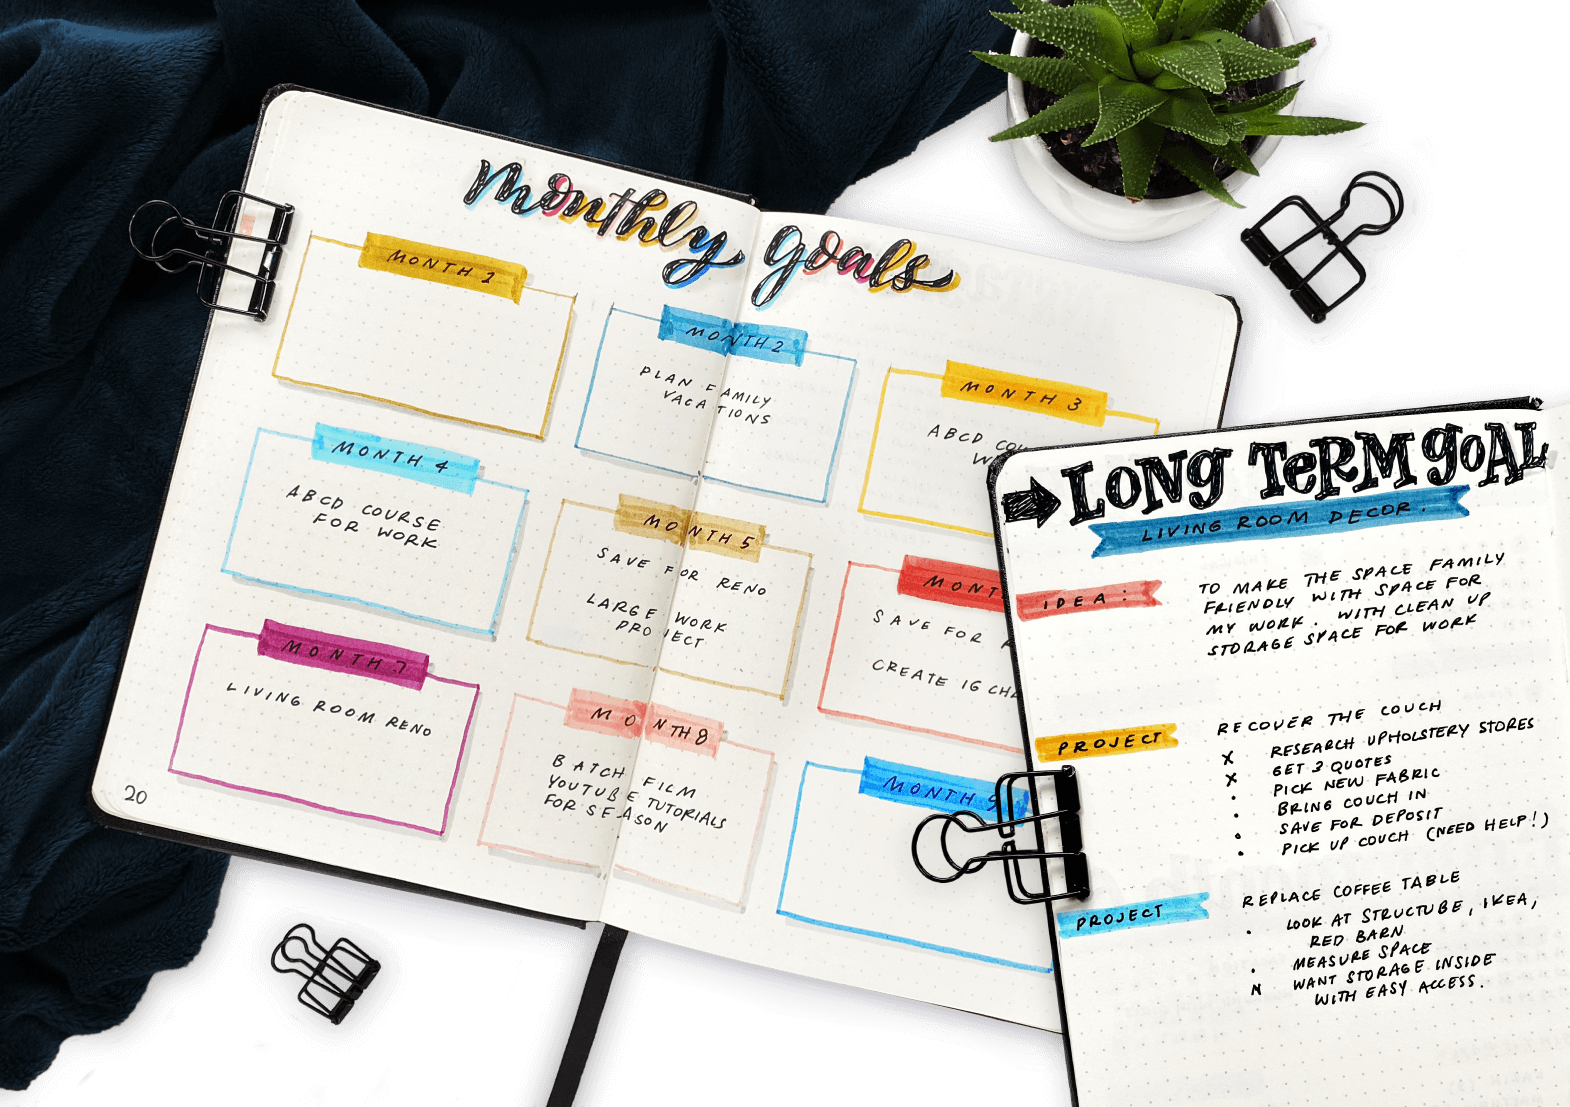 Monthly goals
MONTH 1
MONTH 2
PLAN FAMILY
VACATIONS
MONTH 3
ABCD
MONTH 4
ABCD COURSE
FOR WORK
MONTH 5
SAVE FOR RENO
LARGE WORK
PROJECT
SAVE FOR
CREATE 16
MONTH 7
LIVING ROOM RENO
MONTH 8
BATCH FILM
YOUTUBE TUTORIALS
FOR SEASON
MONTH 9
20
LONG TERM GOAL
LIVING ROOM DECOR.
IDEA:
TO MAKE THE SPACE FAMILY
FRIENDLY WITH SPACE FOR
MY WORK. WITH CLEAN UP
STORAGE SPACE FOR WORK
PROJECT
RECOVER THE COUCH
X RESEARCH UPHOLSTERY STORES
X GET 3 QUOTES
• PICK NEW FABRIC
• BRING COUCH IN
• SAVE FOR DEPOSIT
• PICK UP COUCH (NEED HELP!)
PROJECT
REPLACE COFFEE TABLE
• LOOK AT STRUCTUBE, IKEA,
RED BARN
• MEASURE SPACE
N WANT STORAGE INSIDE
WITH EASY ACCESS.